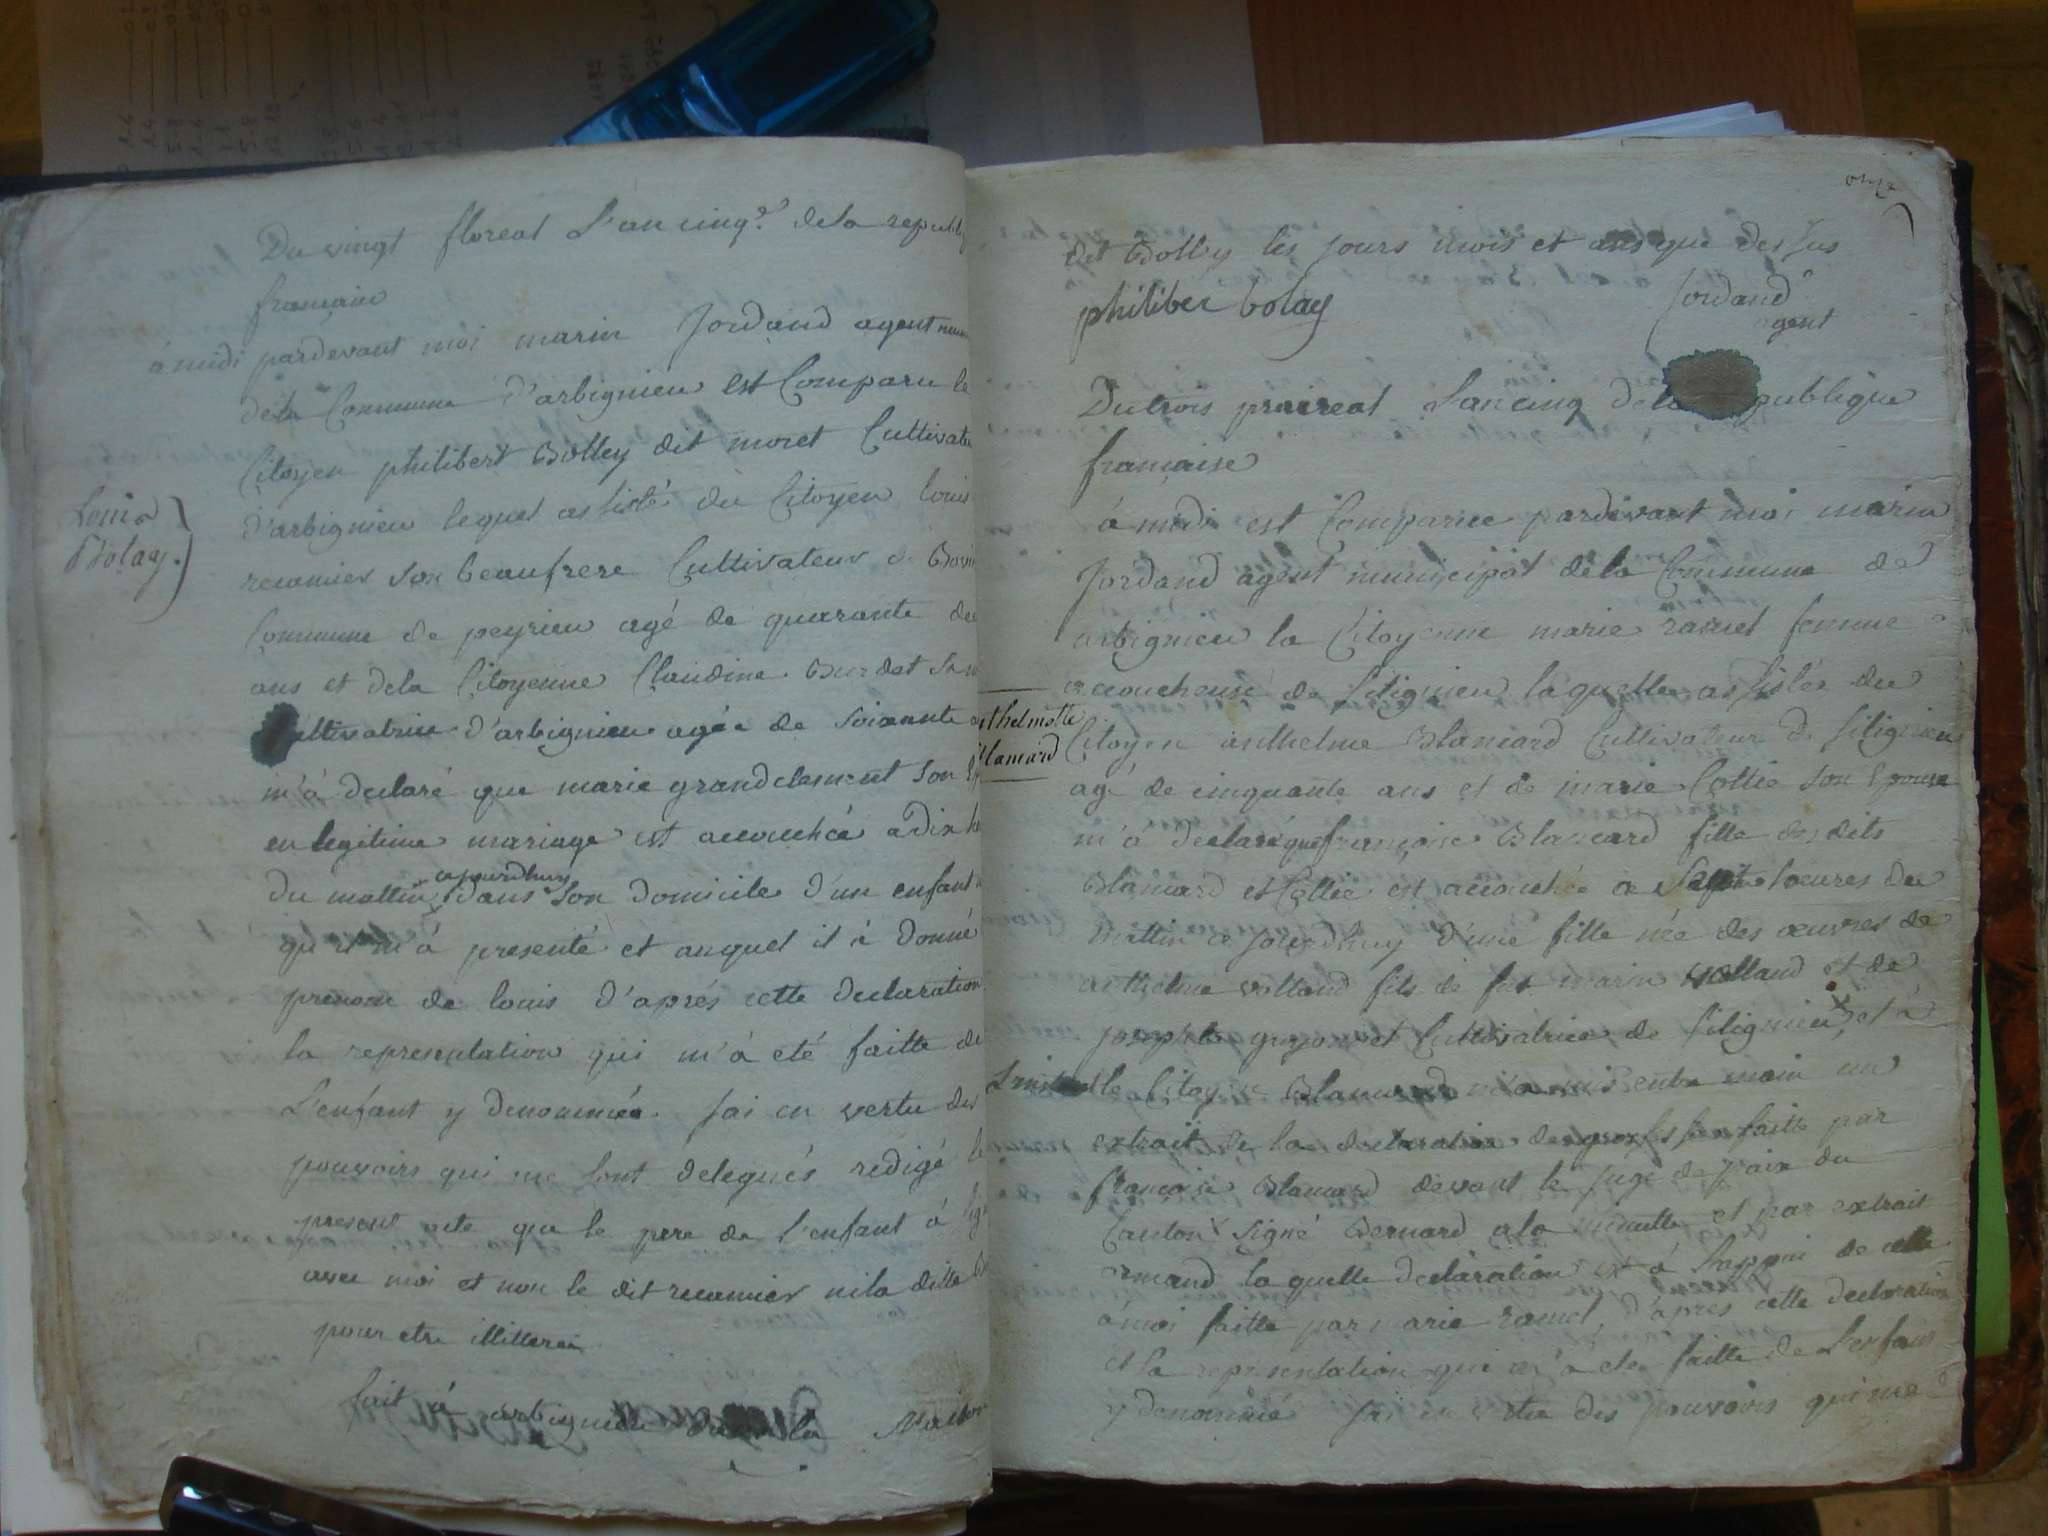 Du vingt floreal L'an cinq.e dela republiq
francaise
a midi pardevant moi marin Jordand agent
dela Commune d'arbignieu est Comparu le
Citoyen philibert Bolley dit moret Cultivate
Louis
Bolay.
d'arbignieu lequel assisté du Citoyen louis
recumier son beaufrere Cultivateur de
Commune de peyrieu agé de quarante de
ans et dela Citoyenne Claudine Burdet
ultivatrice d'arbignieu agée de soixante
m'à declaré que marie grandclement son
en legitime mariage est accouchée a dix he
du mattin aujourdhuy dans son domicile d'un enfant
qu'il m'à presenté et auquel il à donné
prenom de louis d'aprés cette declaration
la representation qui m'à eté faitte de
L'enfant y denommée Jai en vertu des
pouvoirs qui me sont delegués redigé le
present acte que le pere de l'enfant à
avec moi et non le dit recumier nila ditte
pour etre illitterés
fait à arbignieu dans la Maison
onze
dit Bolley les jours mois et ans que dessus
philiber bolay Jordand
agent
Du trois praireal L'an cinq dela publique
francaise
à midi est Comparue pardevant moi marin
Jordand agent municipal dela Commune de
arbignieu la Citoyenne marie ramel femme
accoucheuse de sitignieu laquelle assistée du
thelmette
Blamard
Citoyen anthelme Blancard Cultivateur de sitignieu
agé de cinquante ans et de marie Collie son Epouse
m'à declaré que françoise Blancard fille desdits
Blamard et Collie est accouchée a sept heures du
mattin ce jourdhuy d'une fille née des œuvres de
anthelme volland fils de fut marin volland et de
josephte gujonnet Cultivatrice de sitignieu, et à
L'instant le Citoyen Blamard m'a mis entre main un
extrait de la declaration de grossesse faitte par
françoise Blamard devant le juge de paix du
Canton signé Bernard a la minutte et par extrait
armand laquelle declaration est à l'appui de celle
à moi faitte par marie ramel, d'apres cette declaration
et la representation qui m'à eté faitte de L'enfant
y denommé Jai en vertu des pouvoirs qui me